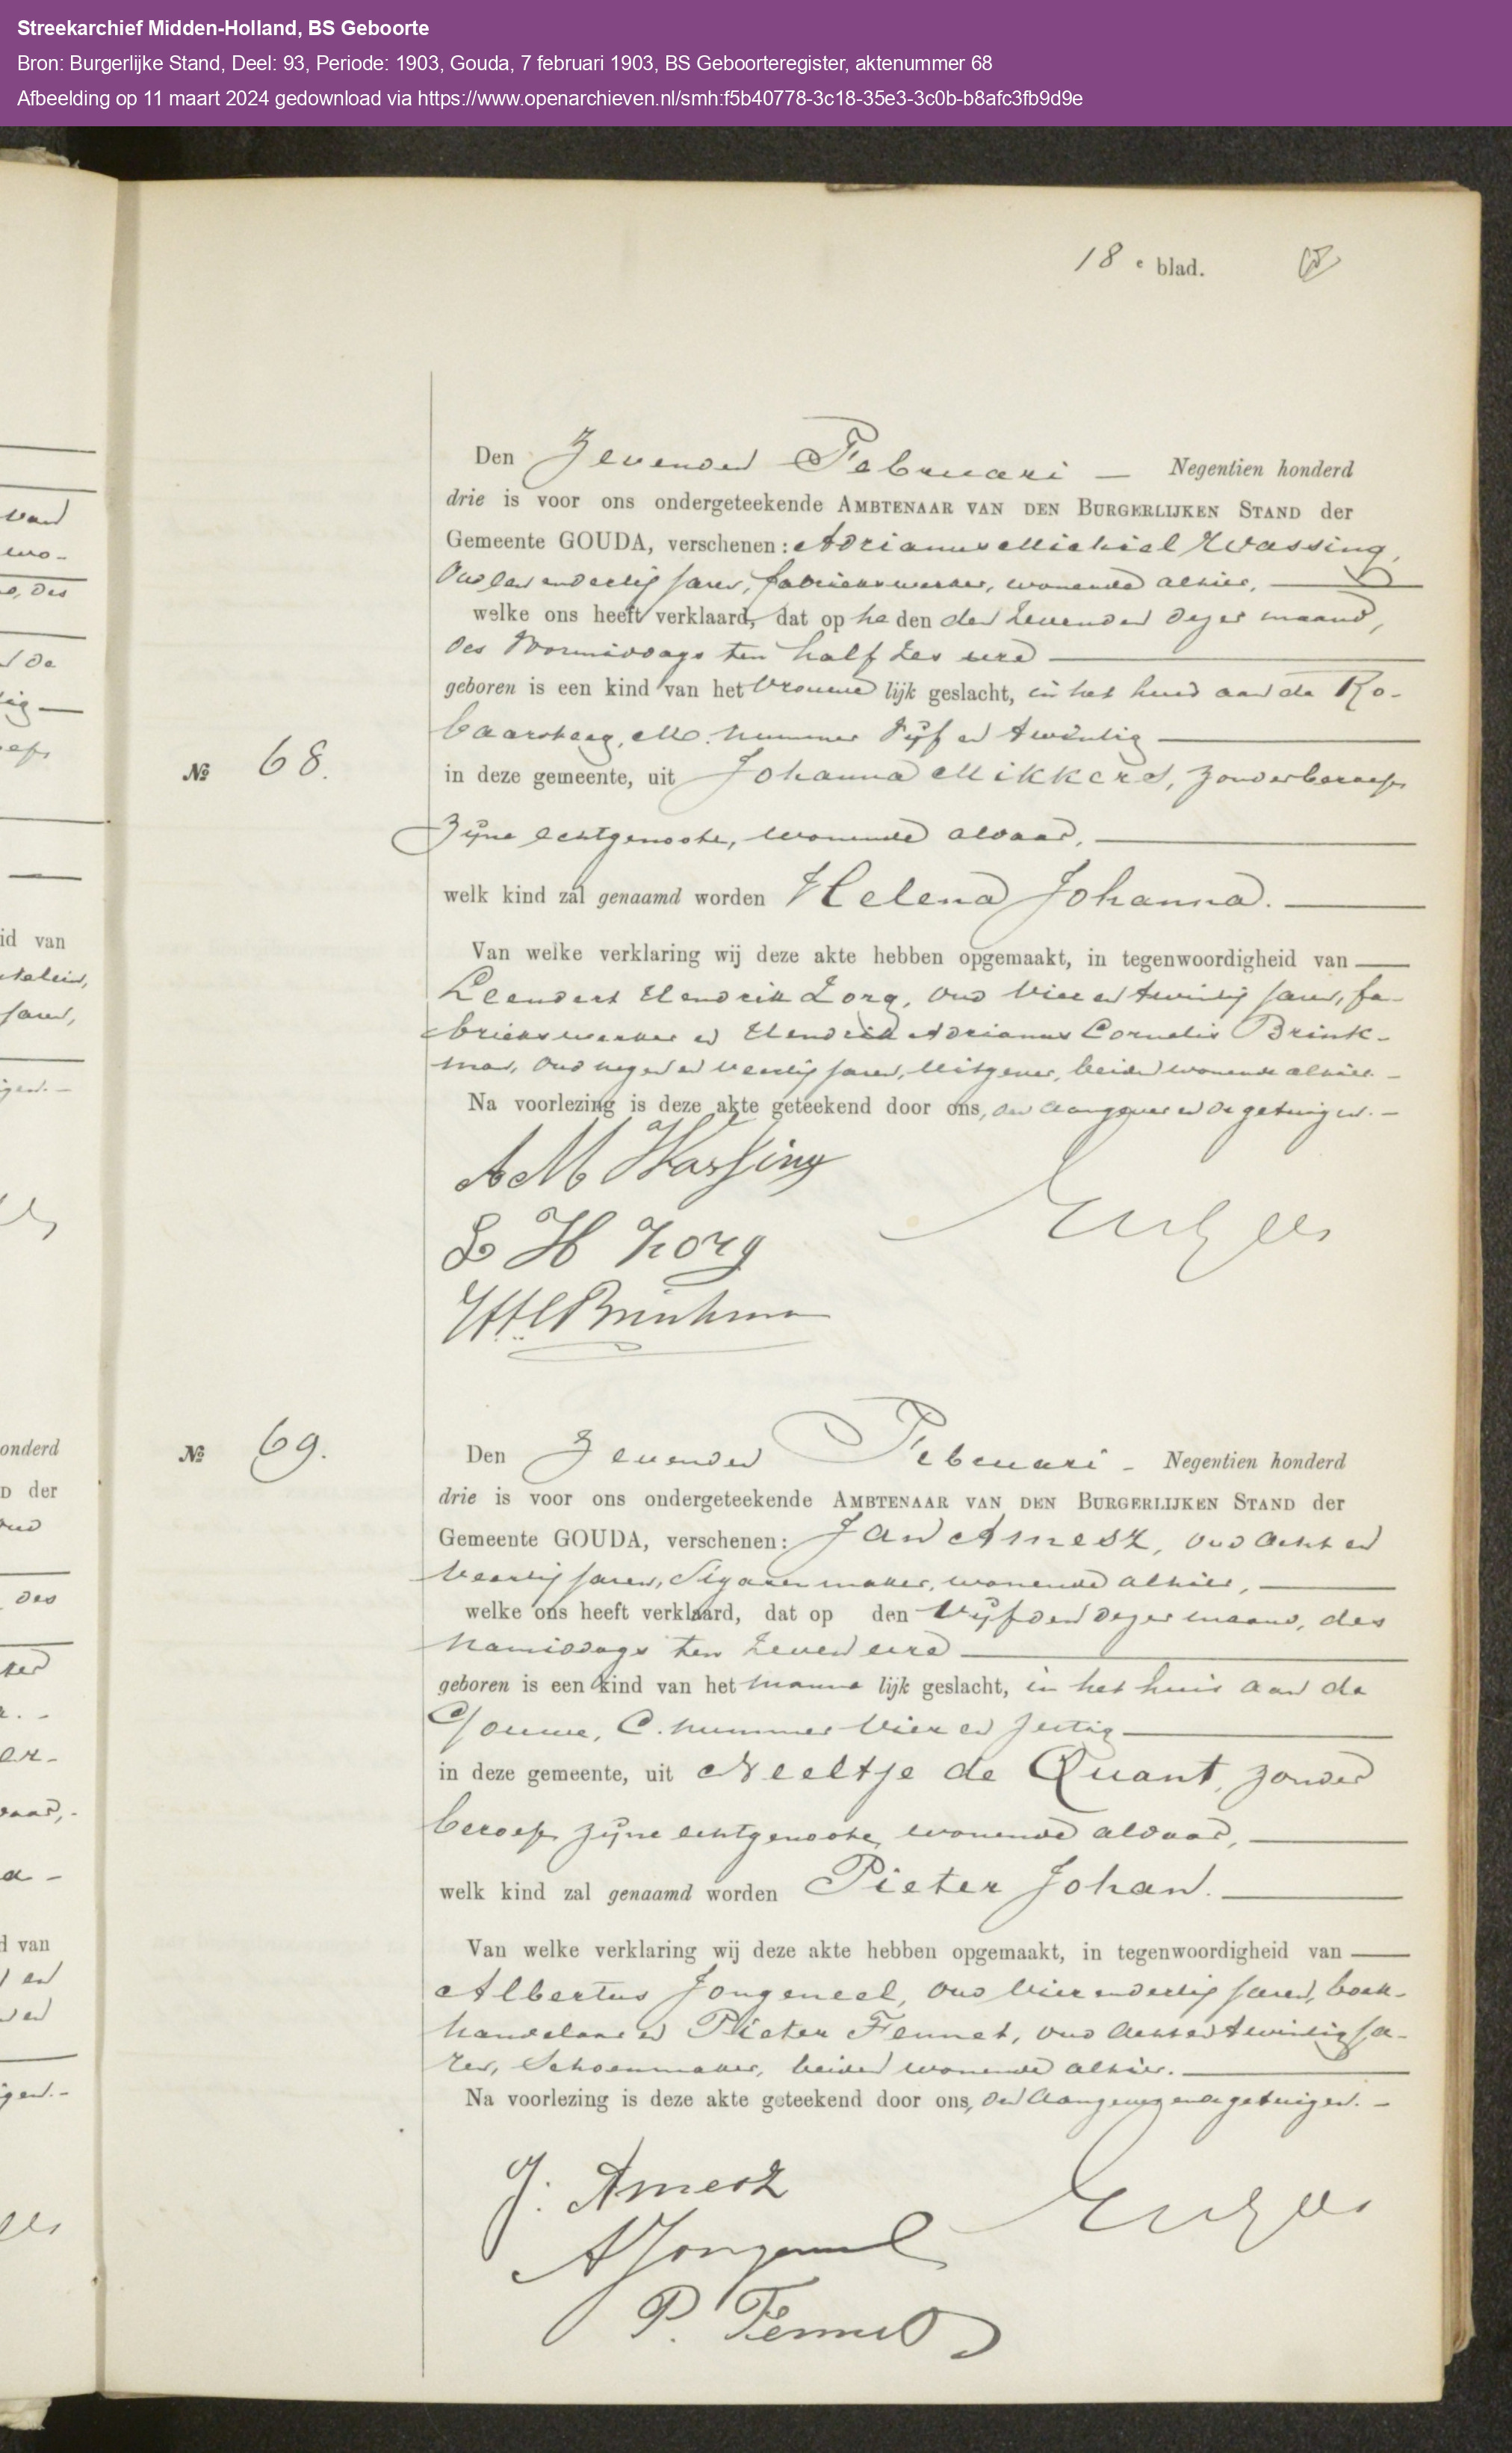 Streekarchief Midden-Holland, BS Geboorte
Bron: Burgerlijke Stand, Deel: 93, Periode: 1903, Gouda, 7 februari 1903, BS Geboorteregister, aktenummer 68
Afbeelding op 11 maart 2024 gedownload via https://www.openarchieven.nl/smh:f5b40778-3c18-35e3-3c0b-b8afc3fb9d9e
18e blad.
Den Zevenden Februari — Negentien honderd
drie is voor ons ondergeteekende AMBTENAAR VAN DEN BURGERLIJKEN STAND der
Gemeente GOUDA, verschenen: Adrianus Michiel Wassing,
Oud een en dertig jaren, fabriekswerker, wonende alhier,
welke ons heeft verklaard, dat op heden den Zevenden dezer maand,
des Voormiddags ten half zes ure
geboren is een kind van het Vrouwelijk geslacht, in het huis aan de Ro-
baarsteeg, M. nummer Vijf en twintig
№ 68.
in deze gemeente, uit Johanna Mikkers, zonder beroep
Zijne echtgenoote, wonende aldaar,
welk kind zal genaamd worden Helena Johanna.
Van welke verklaring wij deze akte hebben opgemaakt, in tegenwoordigheid van
Leendert Hendrik Zorg, oud Vier en twintig jaren, fa-
briekswerker en Hendrik Adrianus Cornelis Brink-
man, oud negen en veertig jaren, Uitgever, beiden wonende alhier. -
Na voorlezing is deze akte geteekend door ons, den aangever en de getuigen. -
A M Wassing
L H Zorg
HAC Brinkman
№ 69.
Den Zevenden Februari - Negentien honderd
drie is voor ons ondergeteekende AMBTENAAR VAN DEN BURGERLIJKEN STAND der
Gemeente GOUDA, verschenen: Jan Amesz, oud Acht en
Veertig jaren, Sigarenmaker, wonende alhier,
welke ons heeft verklaard, dat op den Vijfden dezer maand, des
Namiddags ten Zeven ure
geboren is een kind van het mannelijk geslacht, in het huis aan de
Gouwe, C. nummer Vier en zestig
in deze gemeente, uit Neeltje de Quant, zonder
beroep zijne echtgenoote, wonende aldaar,
welk kind zal genaamd worden Pieter Johan.
Van welke verklaring wij deze akte hebben opgemaakt, in tegenwoordigheid van
Albertus Jongeneel, oud Vier en dertig jaren, boek-
handelaar en Pieter Fennet, oud Acht en twintig ja-
ren, Schoenmaker, beiden wonende alhier.
Na voorlezing is deze akte geteekend door ons, den Aangever en de getuigen. -
J. Amesz
A Jongeneel
P. Fennet